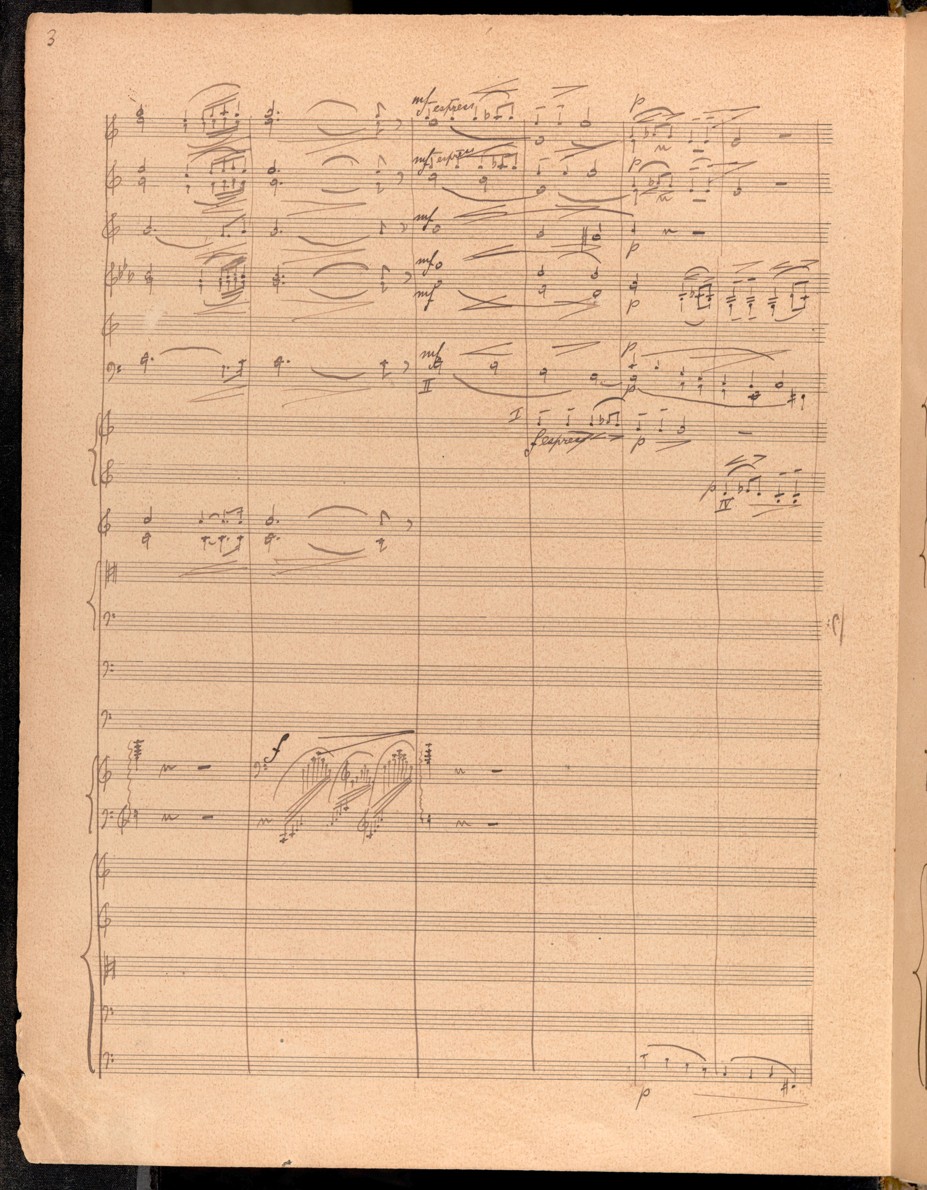 3
mf espress
p
mf espress
p
mf
p
mf
mf
p
mf
p
II
p
I
f espress
p
p
IV
f
p